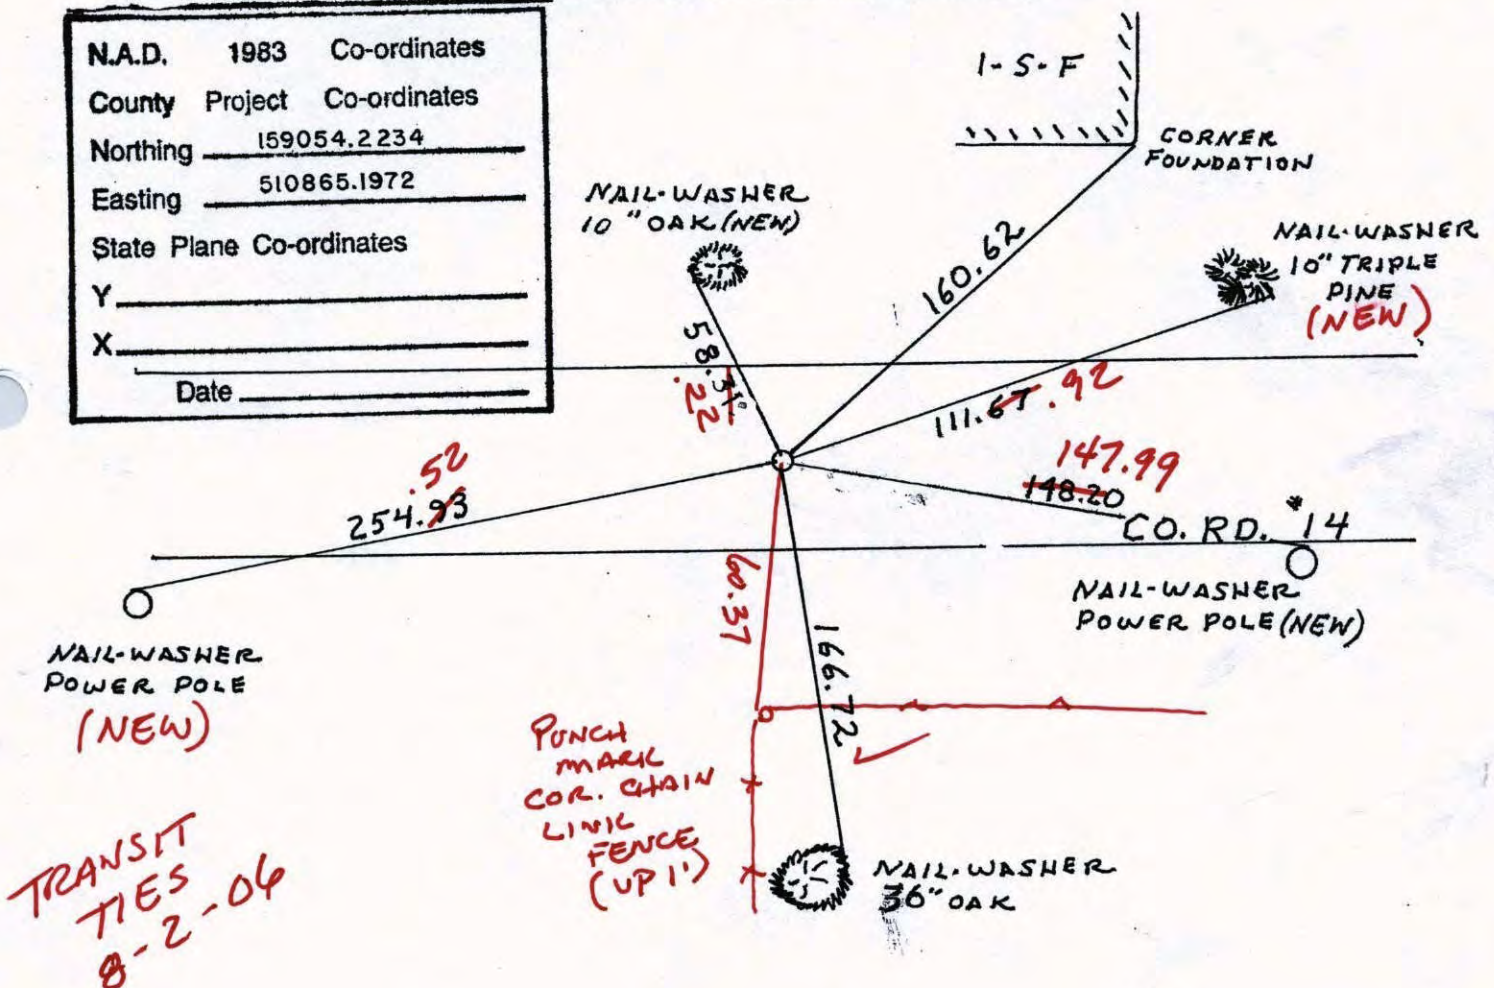 N.A.D. 1983 Co-ordinates
County Project Co-ordinates
Northing 159054.2234
Easting 510865.1972
State Plane Co-ordinates
Y
X
Date
1-S-F
CORNER
FOUNDATION
NAIL-WASHER
10" OAK (NEW)
NAIL-WASHER
10" TRIPLE
PINE
(NEW)
160.62
58.31
.22
111.67 .92
147.99
148.20
.52
254.93
CO. RD. #14
NAIL-WASHER
POWER POLE (NEW)
60.37
166.72
NAIL-WASHER
POWER POLE
(NEW)
PUNCH
MARK
COR. CHAIN
LINK
FENCE
(UP 1')
NAIL-WASHER
36" OAK
TRANSIT
TIES
8-2-06